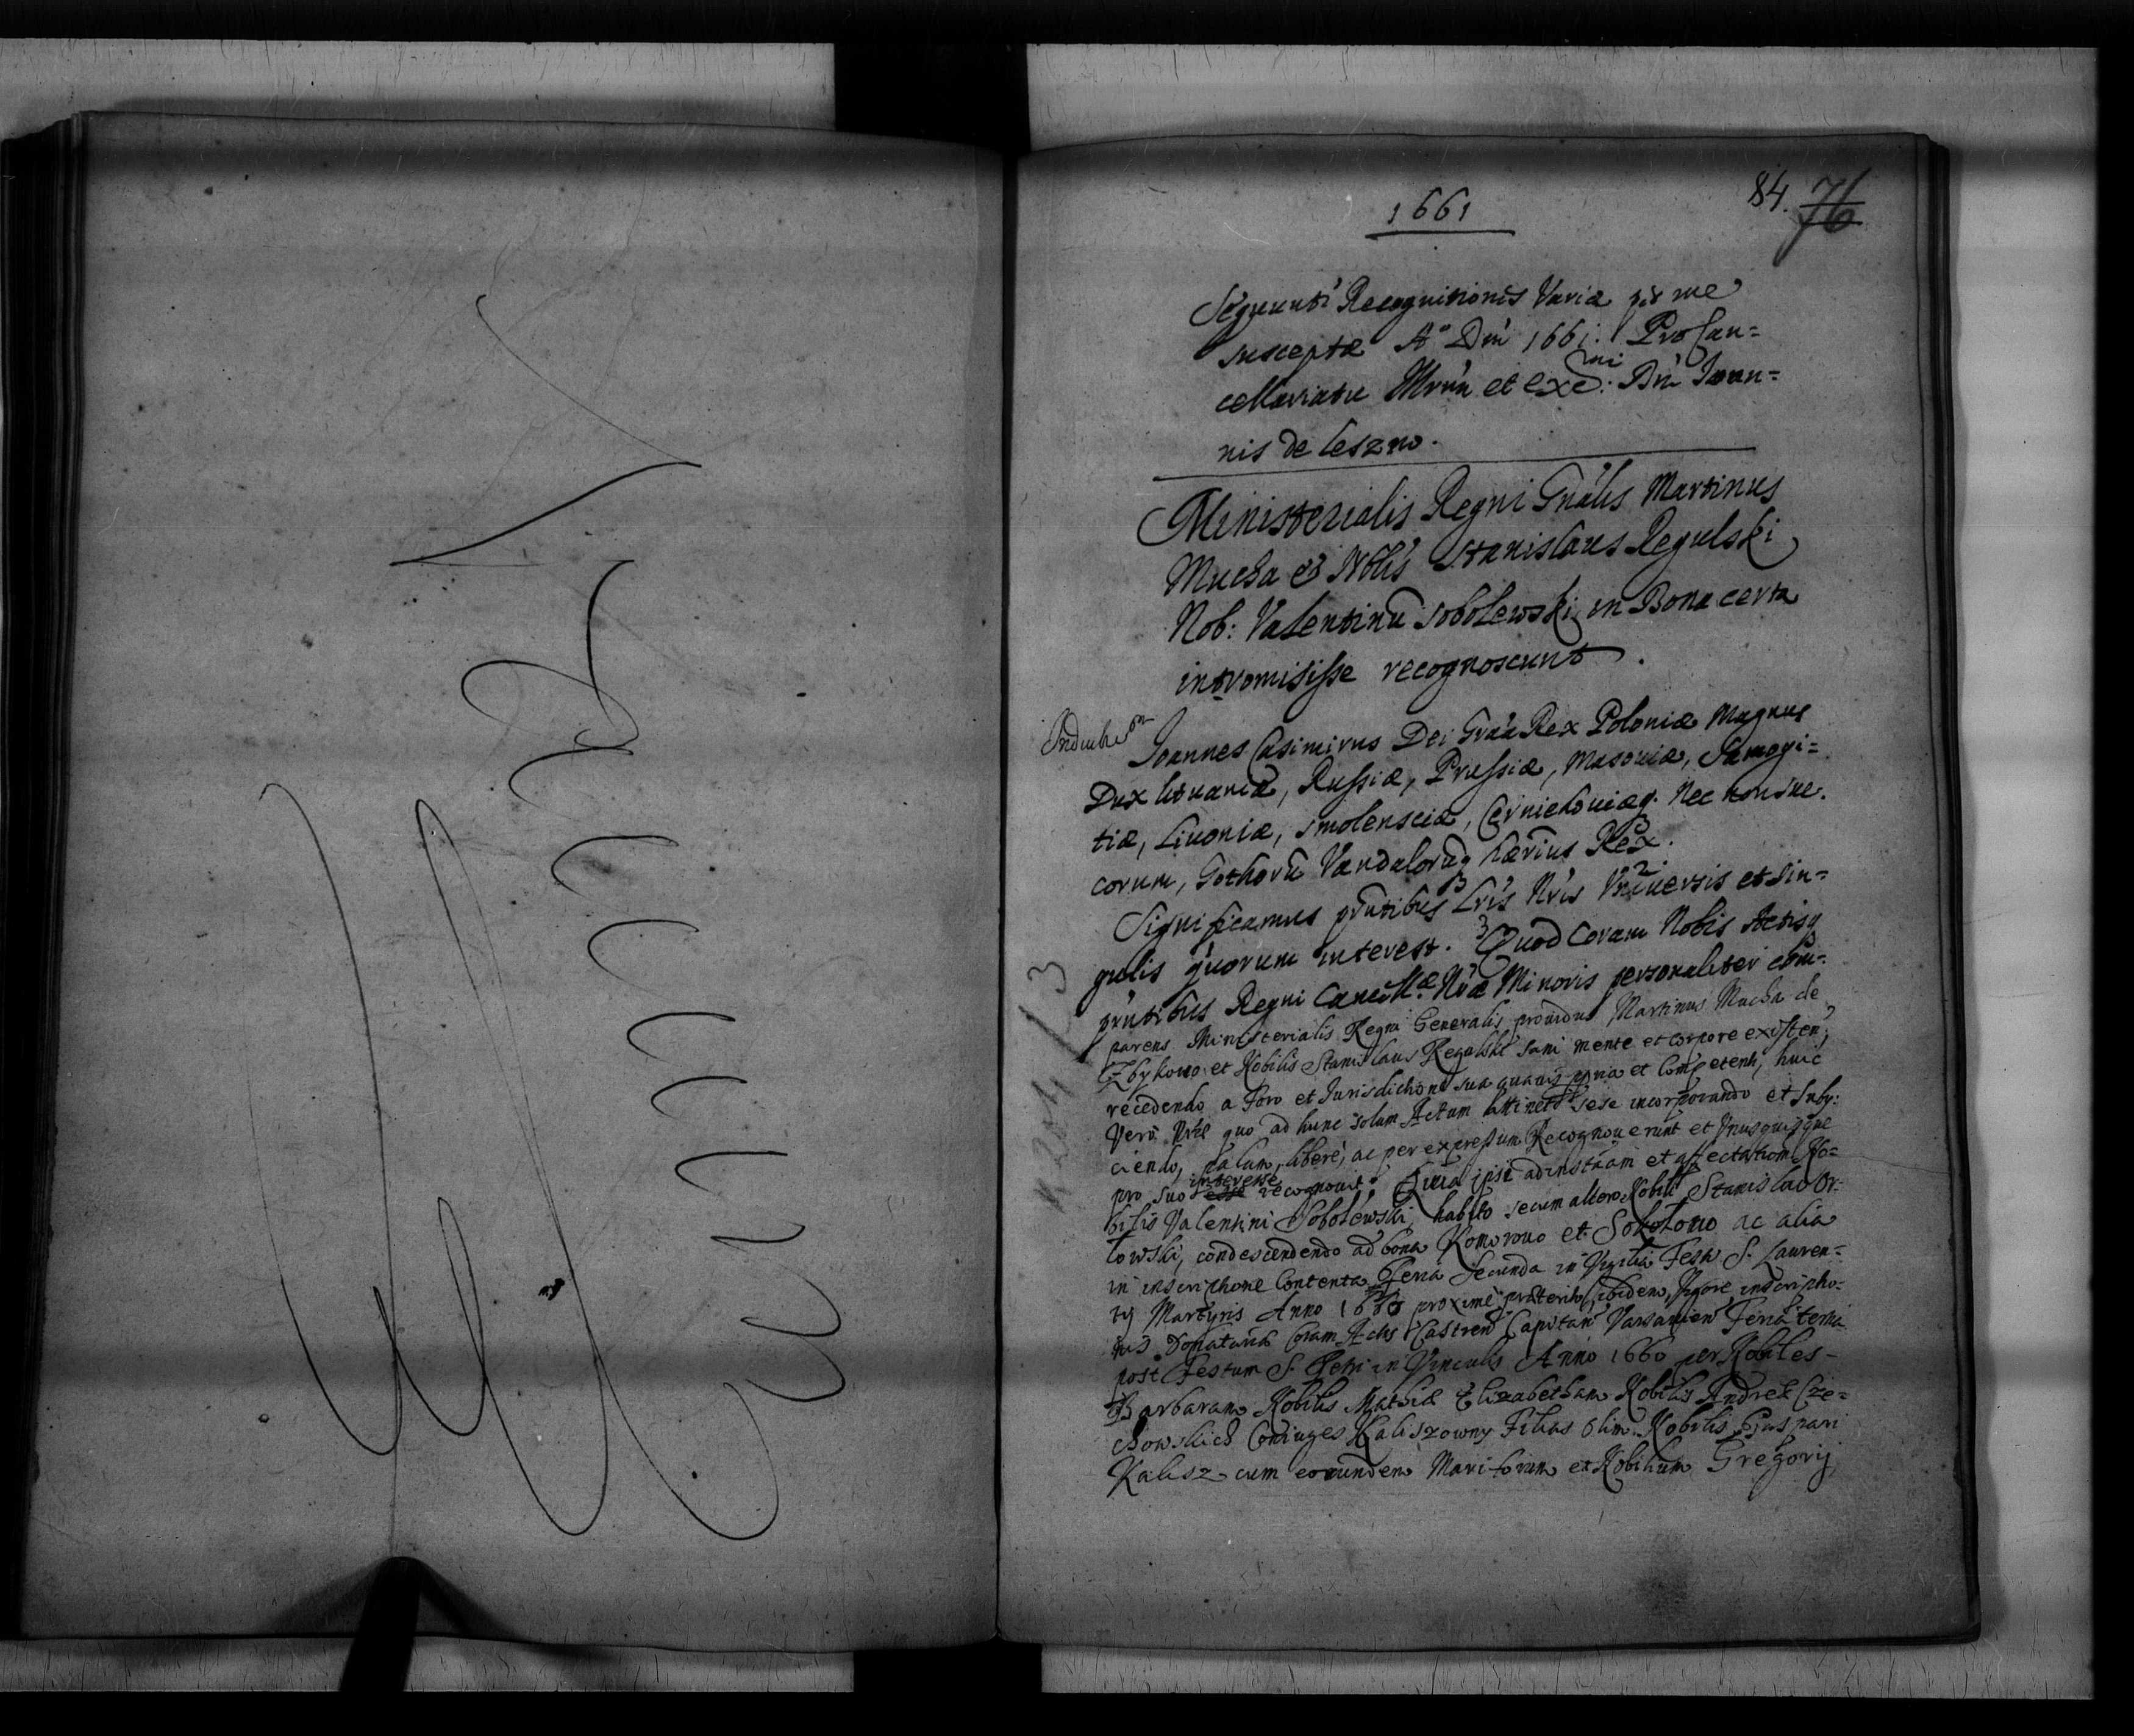 Vacant
1661
84. 76
Sequuntr Recognitiones Variæ per me
susceptæ A° Dni 1661. Pro Can=
cellariatu Illrmi et Exc:mi Dni Ioan=
nis de Leszno.
Ministerialis Regni Gnalis Martinus
Mucha & Nblis Stanislaus Regulski
Nob: Valentinū Sobolewski in Bona certa
intromisisse recognoscunt.
Ioannes Casimirus Dei Gráa Rex Poloniæ Magnus
Dux Lituaniæ, Russiæ, Prussiæ, Masoviæ, Samogi=
tiæ, Livoniæ, Smolensciæ, Czerniehoviæq. Nec non Sue.
corum, Gothorū Vandalorūq hæríus Rex.
Significamus pñtibus Lris Nris Vniversis et sin=
gulis quorum interest. Quod Coram Nobis Actisq
pñtibus Regni Cancell:æ Nræ Minoris personaliter com=
parens Ministerialis Regni Generalis providus Martinus Mucha de
Zbykowo et Nobilis Stanislaus Regulski sani mente et corpore existen;
recedendo a Foro et Iurisdictione sua quavis ppria et Competenti, huic
Vero Nræ quo ad hunc solum Actum attinet sese incorporando et subij:
ciendo, palam, libere, ac per expressum Recognoverunt et Vnusquisque
pro suo interesse recognovit. Quia ipsi ad instāam et affectationem No=
bilis Valentini Sobolewski, habito secum altero Nobili Stanislao Or=
lowski, condescendendo ad bona Komorowo et Sokolowo ac alia
in inscriptione Contenta Feria Secunda in Vigilia Festi S. Lauren=
tij Martyris Anno 1660 proxime præterito, ibidem, Vigore inscriptio=
nis Donatoriæ Coram Actis Castren Capitan Varsavien Feria tertia
post Festum S. Petri in Vinculis Anno 1660 per Nobiles
Barbaram Nobilis Mathiæ Elizabetham Nobilis Andreæ Cze=
chowskich Coniuges Kaliszowny Filias Olim Nobilis Gaspari
Kalisz cum eorundem Maritorum et Nobilium Gregorij